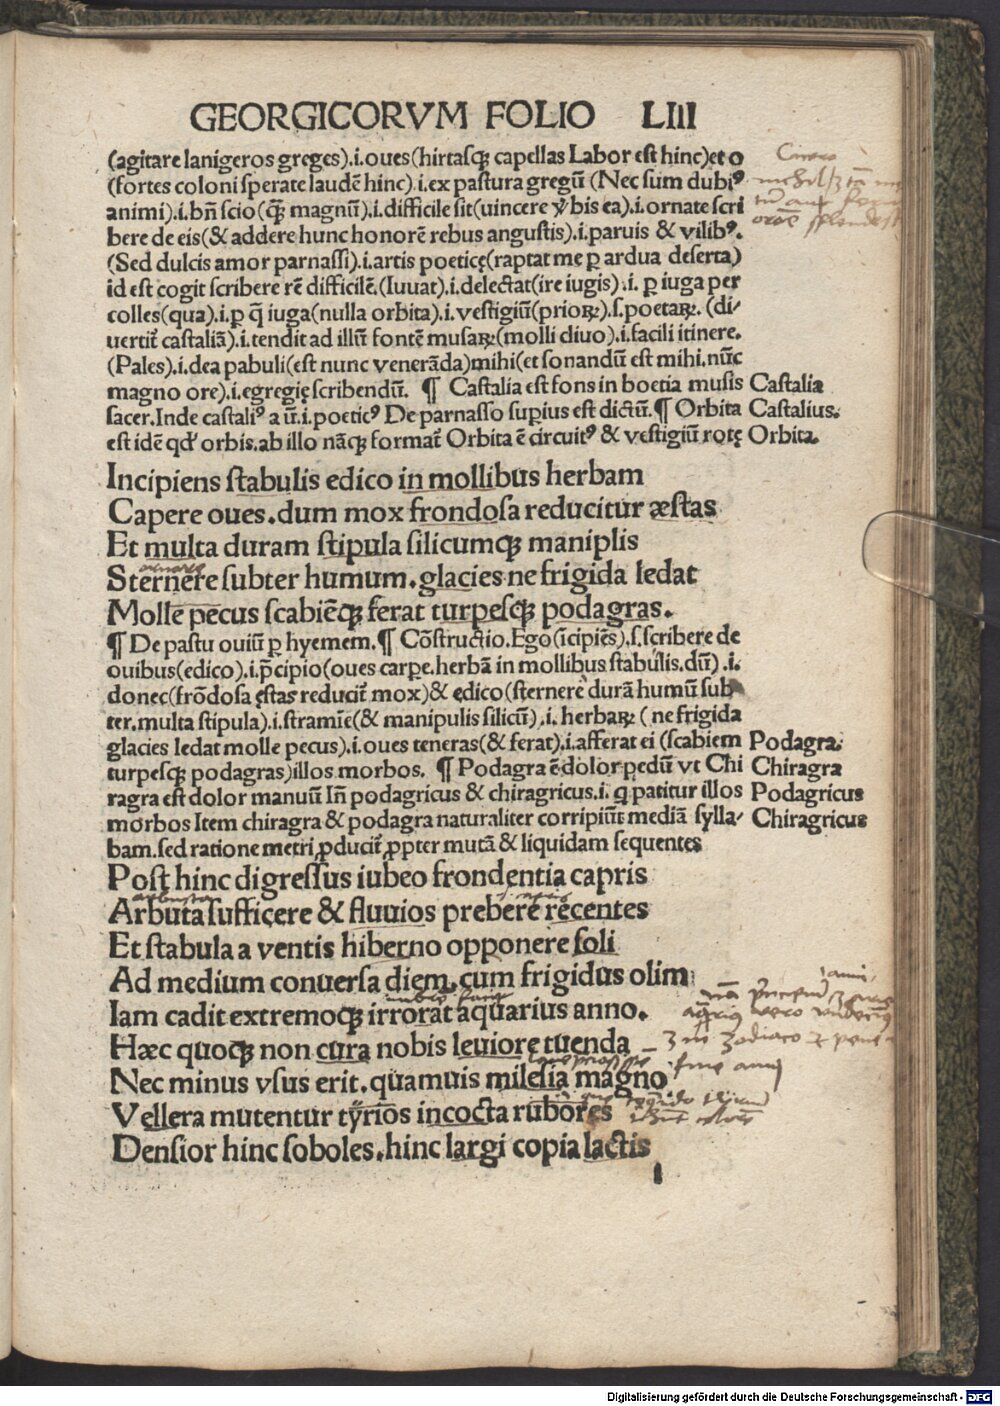 GEORGICORVM FOLIO LIII
(agitare lanigeros greges).i.oues(hirtasqꝫ capellas Labor est hinc)et o
(fortes coloni sperate laudẽ hinc).i.ex pastura gregũ (Nec sum dubiꝰ
animi).i.bñ scio(q̃ magnũ).i.difficile sit(uincere v̾bis ea).i.ornate scri
bere de eis(& addere hunc honorẽ rebus angustis).i.paruis & vilibꝰ.
(Sed dulcis amor parnassi).i.artis poeticę(raptat me ꝑ ardua deserta)
id est cogit scribere rẽ difficilẽ.(Iuuat).i.delectat(ire iugis).i. ꝑ iuga per
colles(qua).i.ꝑ q̄ iuga(nulla orbita).i.vestigiũ(prioꝝ).s.poetaꝝ. (di/
uertit᷑ castaliã).i.tendit ad illũ fontẽ musaꝝ(molli cliuo).i.facili itinere.
(Pales).i.dea pabuli(est nunc venerãda)mihi(et sonandũ est mihi.nũc
magno ore).i.egregię scribendũ. ¶ Castalia est fons in boetia musis
sacer.Inde castaliꝰ a ũ.i.poeticꝰ De parnasso supius est dictũ.¶ Orbita
est idẽ qd' orbis.ab illo nãqꝫ format᷑ Orbita ẽ circuitꝰ & vestigiũ rotę
Castalia
Castalius.
Orbita.
Incipiens stabulis edico in mollibus herbam
Capere oues.dum mox frondosa reducitur æstas
Et multa duram stipula silicumqꝫ maniplis
Sternere subter humum.glacies ne frigida ledat
Molle pecus scabiẽqꝫ ferat turpesqꝫ podagras.
¶ De pastu ouiũ ꝑ hyemem.¶ Cõstructio.Ego(ĩcipiẽs).s.scribere de
ouibus(edico).i.p̄cipio(oues carpe.herbã in mollibus stabulis.dũ).i.
donec(frõdosa ęstas reducit᷑ mox)& edico(sternere durã humũ sub
ter.multa stipula).i.stramĩe(& manipulis silicũ).i. herbaꝝ (ne frigida
glacies ledat molle pecus).i.oues teneras(& ferat).i.afferat ei (scabiem
turpesqꝫ podagras)illos morbos. ¶ Podagra ẽ dolor pedũ vt Chi
ragra est dolor manuũ Iñ podagricus & chiragricus.i. ꝙ patitur illos
morbos Item chiragra & podagra naturaliter corripiũt᷑ mediã sylla/
bam.sed ratione metri ꝓducit᷑ ꝓpter mutã & liquidam sequentes
Podagra.
Chiragra
Podagricus
Chiragricus
Post hinc digressus iubeo frondentia capris
Arbuta sufficere & fluuios prebere recentes
Et stabula a ventis hiberno opponere soli
Ad medium conuersa diem.cum frigidus olim
Iam cadit extremoqꝫ irrorat aquarius anno.
Hæc quoqꝫ non cura nobis leuiore tuenda
Nec minus vsus erit.quamuis milesia magno
Vellera mutentur tyrios incocta rubores
Densior hinc soboles.hinc largi copia lactis
Digitalisierung gefördert durch die Deutsche Forschungsgemeinschaft - DFG